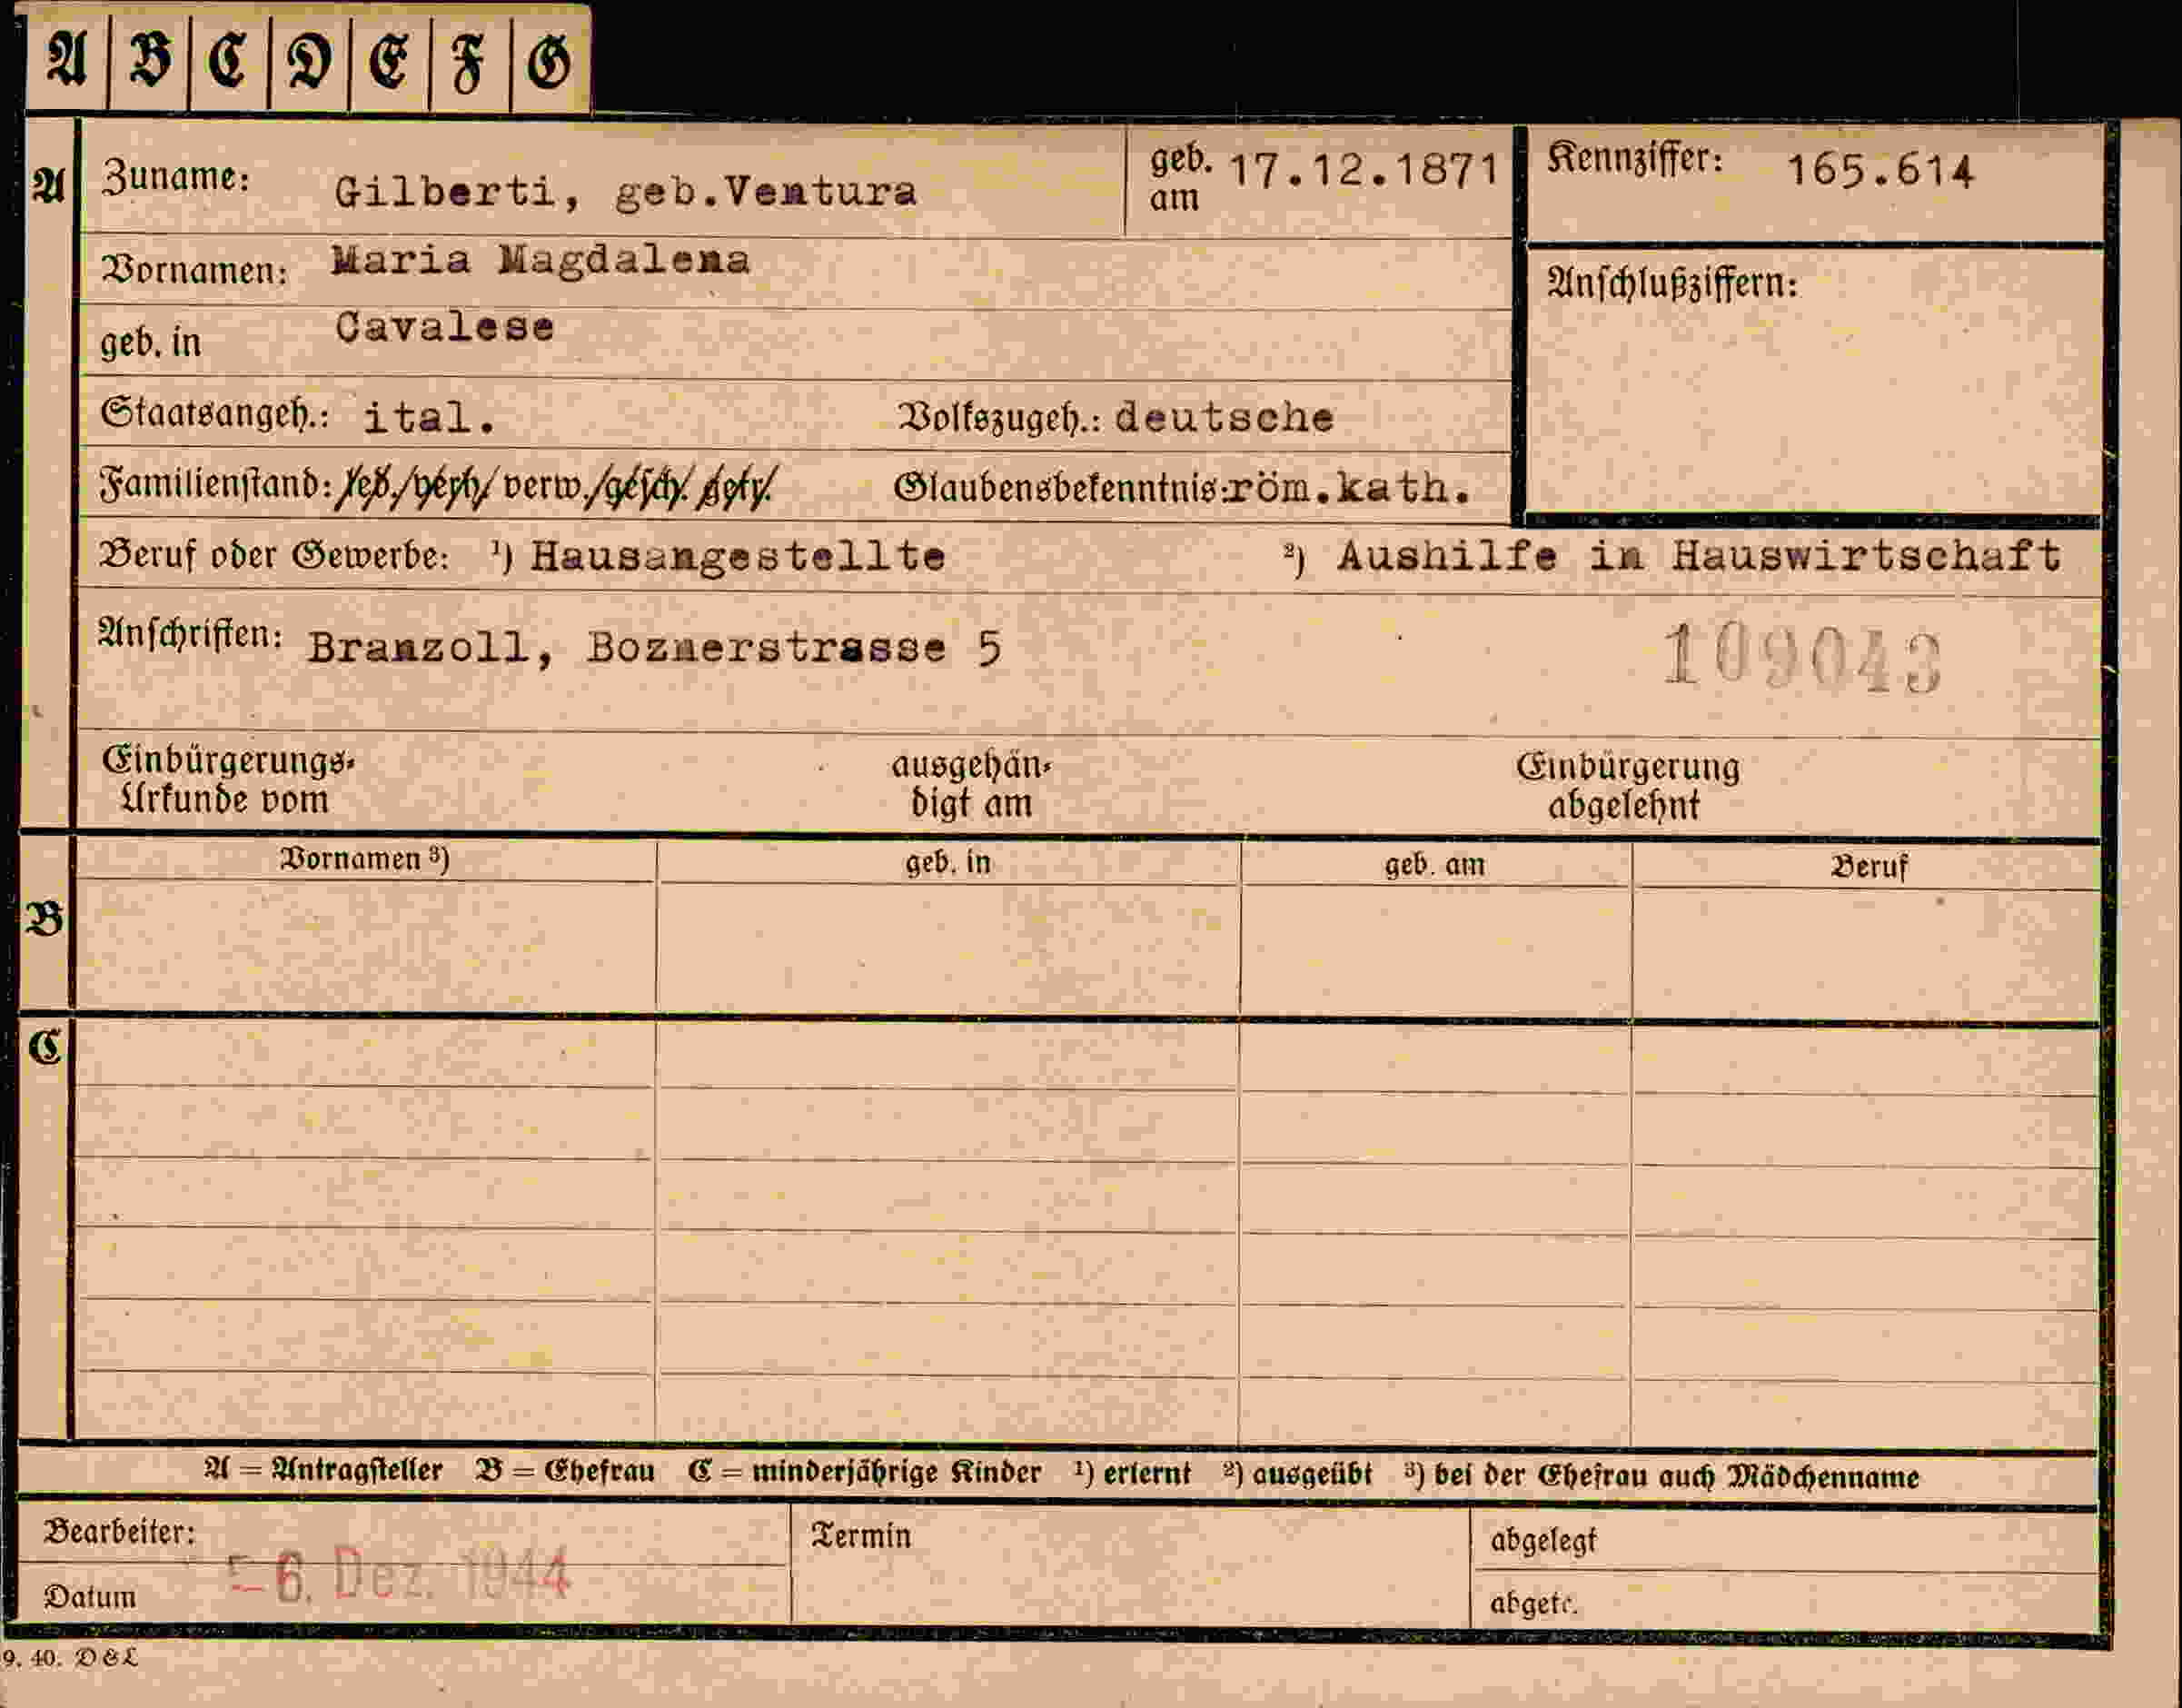 A B C D E F G
A
Zuname: Gilberti, geb.Ventura
geb. am 17.12.1871
Kennziffer: 165.614
Vornamen: Maria Magdalena
Anschlußziffern:
geb. in Cavalese
Staatsangeh.: ital. Volkszugeh.: deutsche
Familienstand: led./verh./verw./gesch./getr. Glaubensbekenntnis: röm.kath.
Beruf oder Gewerbe: ¹) Hausangestellte ²) Aushilfe in Hauswirtschaft
Anschriften: Branzoll, Boznerstrasse 5
109043
Einbürgerungs-
Urkunde vom
ausgehän-
digt am
Einbürgerung
abgelehnt
B
Vornamen ³) geb. in geb. am Beruf
C
A = Antragsteller B = Ehefrau C = minderjährige Kinder ¹) erlernt ²) ausgeübt ³) bei der Ehefrau auch Mädchenname
Bearbeiter:
Termin
abgelegt
Datum - 6. Dez. 1944
abgetr.
9. 40. D & L